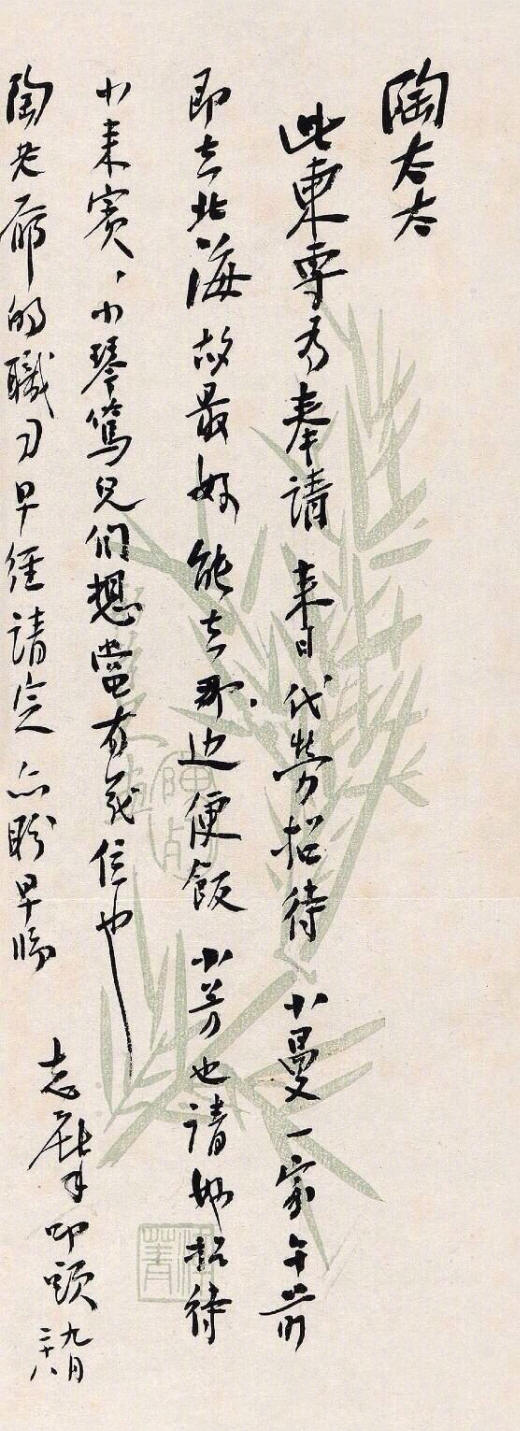 陶太太
此柬專为奉請 春日代勞招待 小曼一家午前
即去北海 故最好能去那边便飯 小芳也請她招待
小来賓、小琴篤兒们想當有荒信也
陶老爺的職刀早經請定 亦盼早临
志摩叩頭 九月二十八